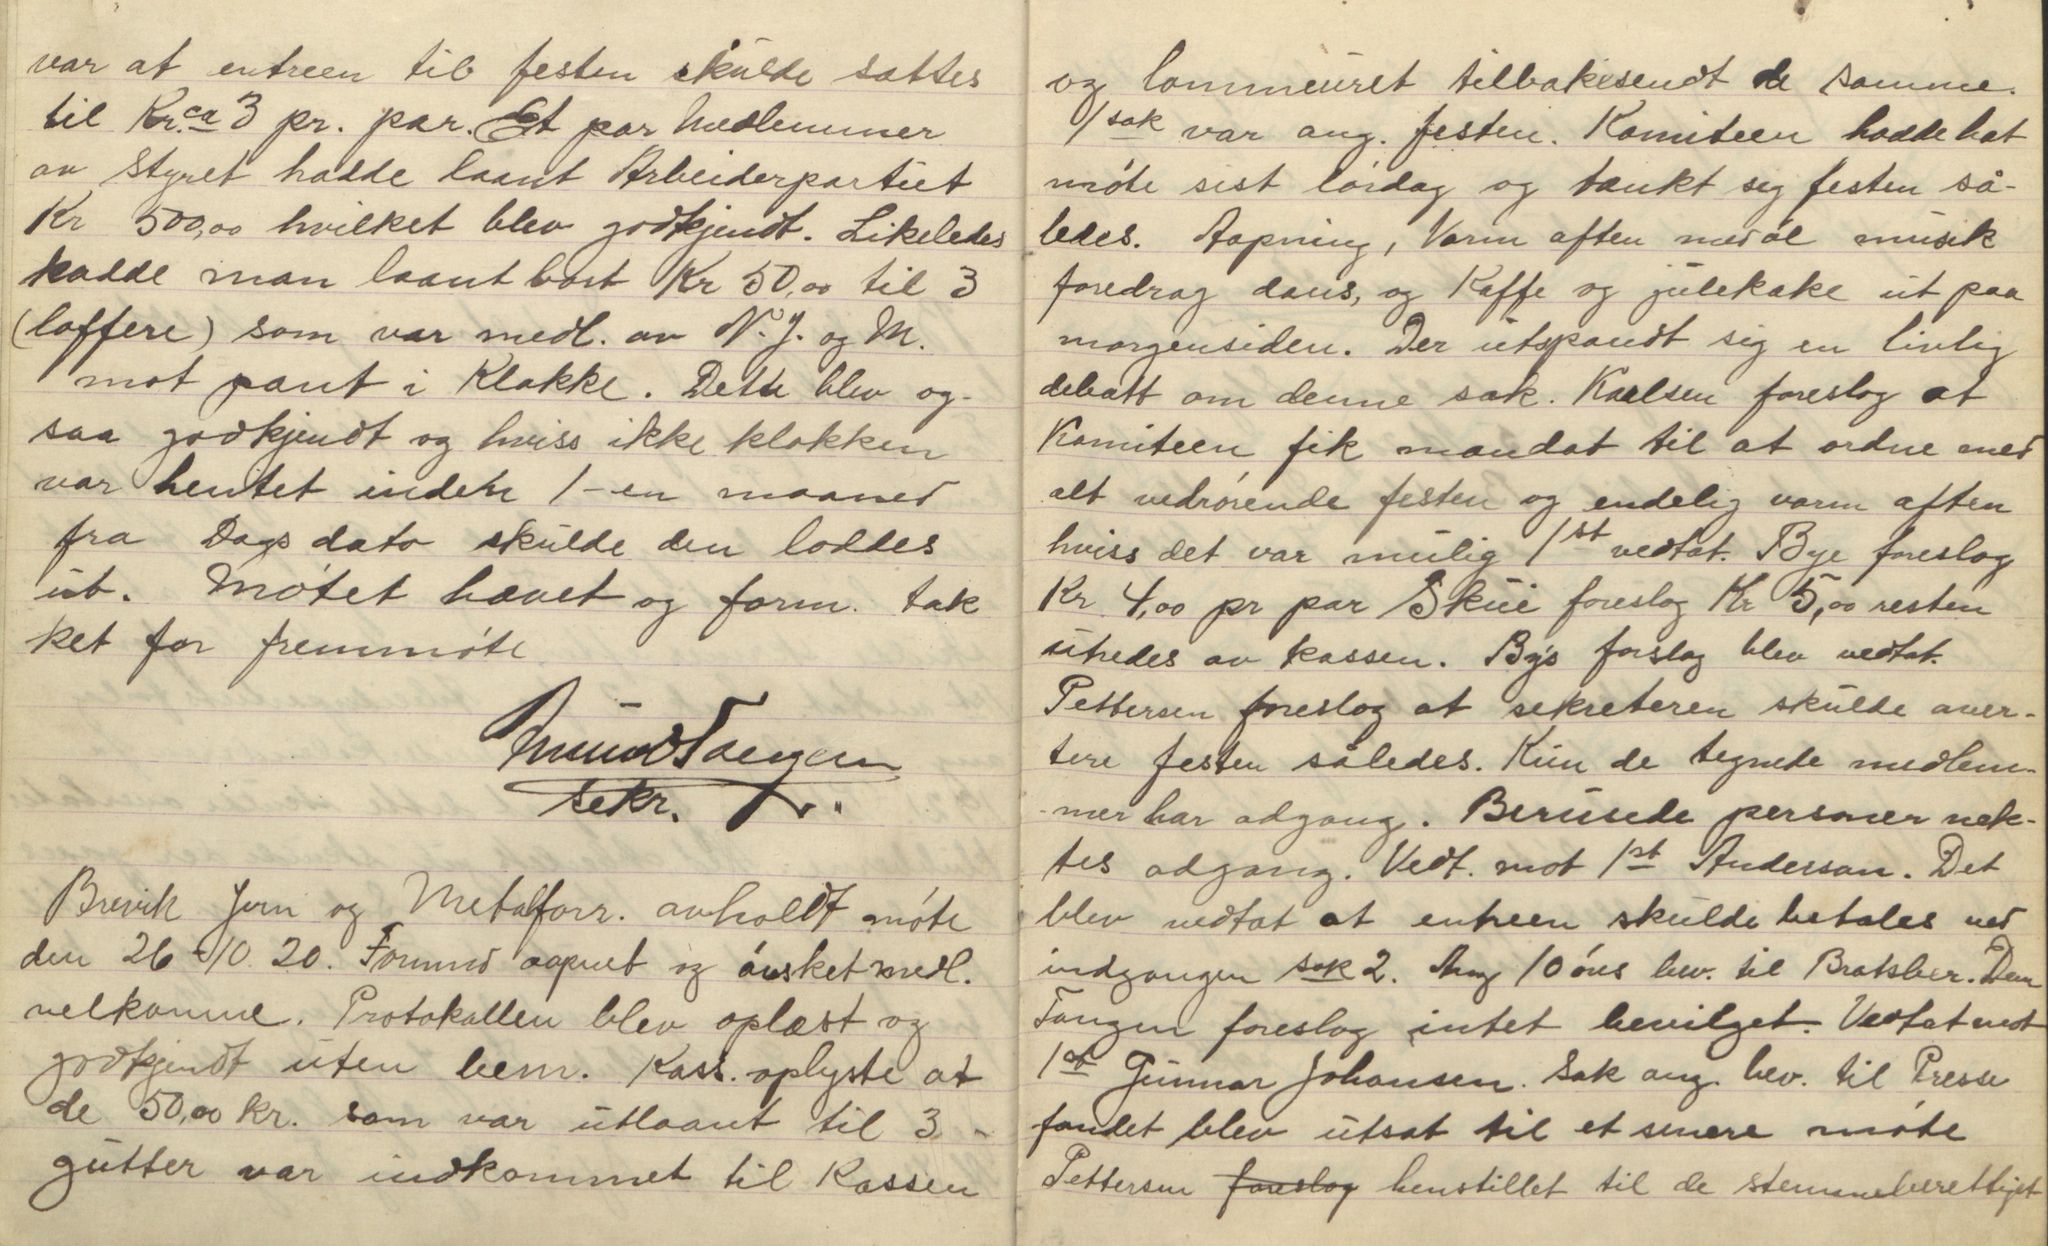 var at entreen til festen skulde sættes
til Kr. ca 3 pr. par. Et par medlemmer
av styret hadde laant Arbeiderpartiet
Kr 500,00 hvilket blev godkjendt. Likeledes
hadde man laant bort Kr 50,00 til 3
(loffere) som var medl. av N. J. og M.
mot pant i Klokke. Dette blev og-
saa godkjendt og hviss ikke klokken
var hentet inden 1-en maaned
fra Dags dato skulde den loddes
ut. Møtet hævet og form. tak
ket for fremmøte
sekr.
Brevik Jern og Metalforr. avholdt møte
den 26-10.20. Formand aapnet og ønsket medl.
velkomne. Protokollen blev oplæst og
godkjendt uten bem. Kass. oplyste at
de 50,00 kr. som var utlaant til 3
gutter var indkommet til Kassen
og lommeuret tilbakesendt de samme.
1 sak var ang. festen. Komiteen hadde hat
møte sist lørdag og tænkt sig festen så-
ledes. Aapning, Varm aften med øl musik
foredrag dans, og Kaffe og julekake ut paa
morgensiden. Der utspandt sig en livlig
debatt om denne sak. Karlsen foreslog at
Komiteen fik mandat til at ordne med
alt vedrørende festen og endelig varm aften
hviss det var mulig 1 st vedtat. Bye foreslog
Kr 4,00 pr par Skui foreslog Kr 5,00 resten
utredes av kassen. By's forslag blev vedtat.
Pettersen foreslog at sekreteren skulde aver-
tere festen således. Kun de tegnede medlem-
mer har adgang. Berusede personer nek-
tes adgang. Vedt. mot 1 st Anderson. Det
blev vedtat at entreen skulde betales ved
indgangen sak 2. Ang 10 øres bev. til Bratsber. Dem
Tangen foreslog intet bevilget. Vedtat mot
1 st Gunnar Johansen. Sak ang. bev. til Presse
fondet blev utsat til et senere møte
Pettersen foreslog henstillet til de stemmeberettiget